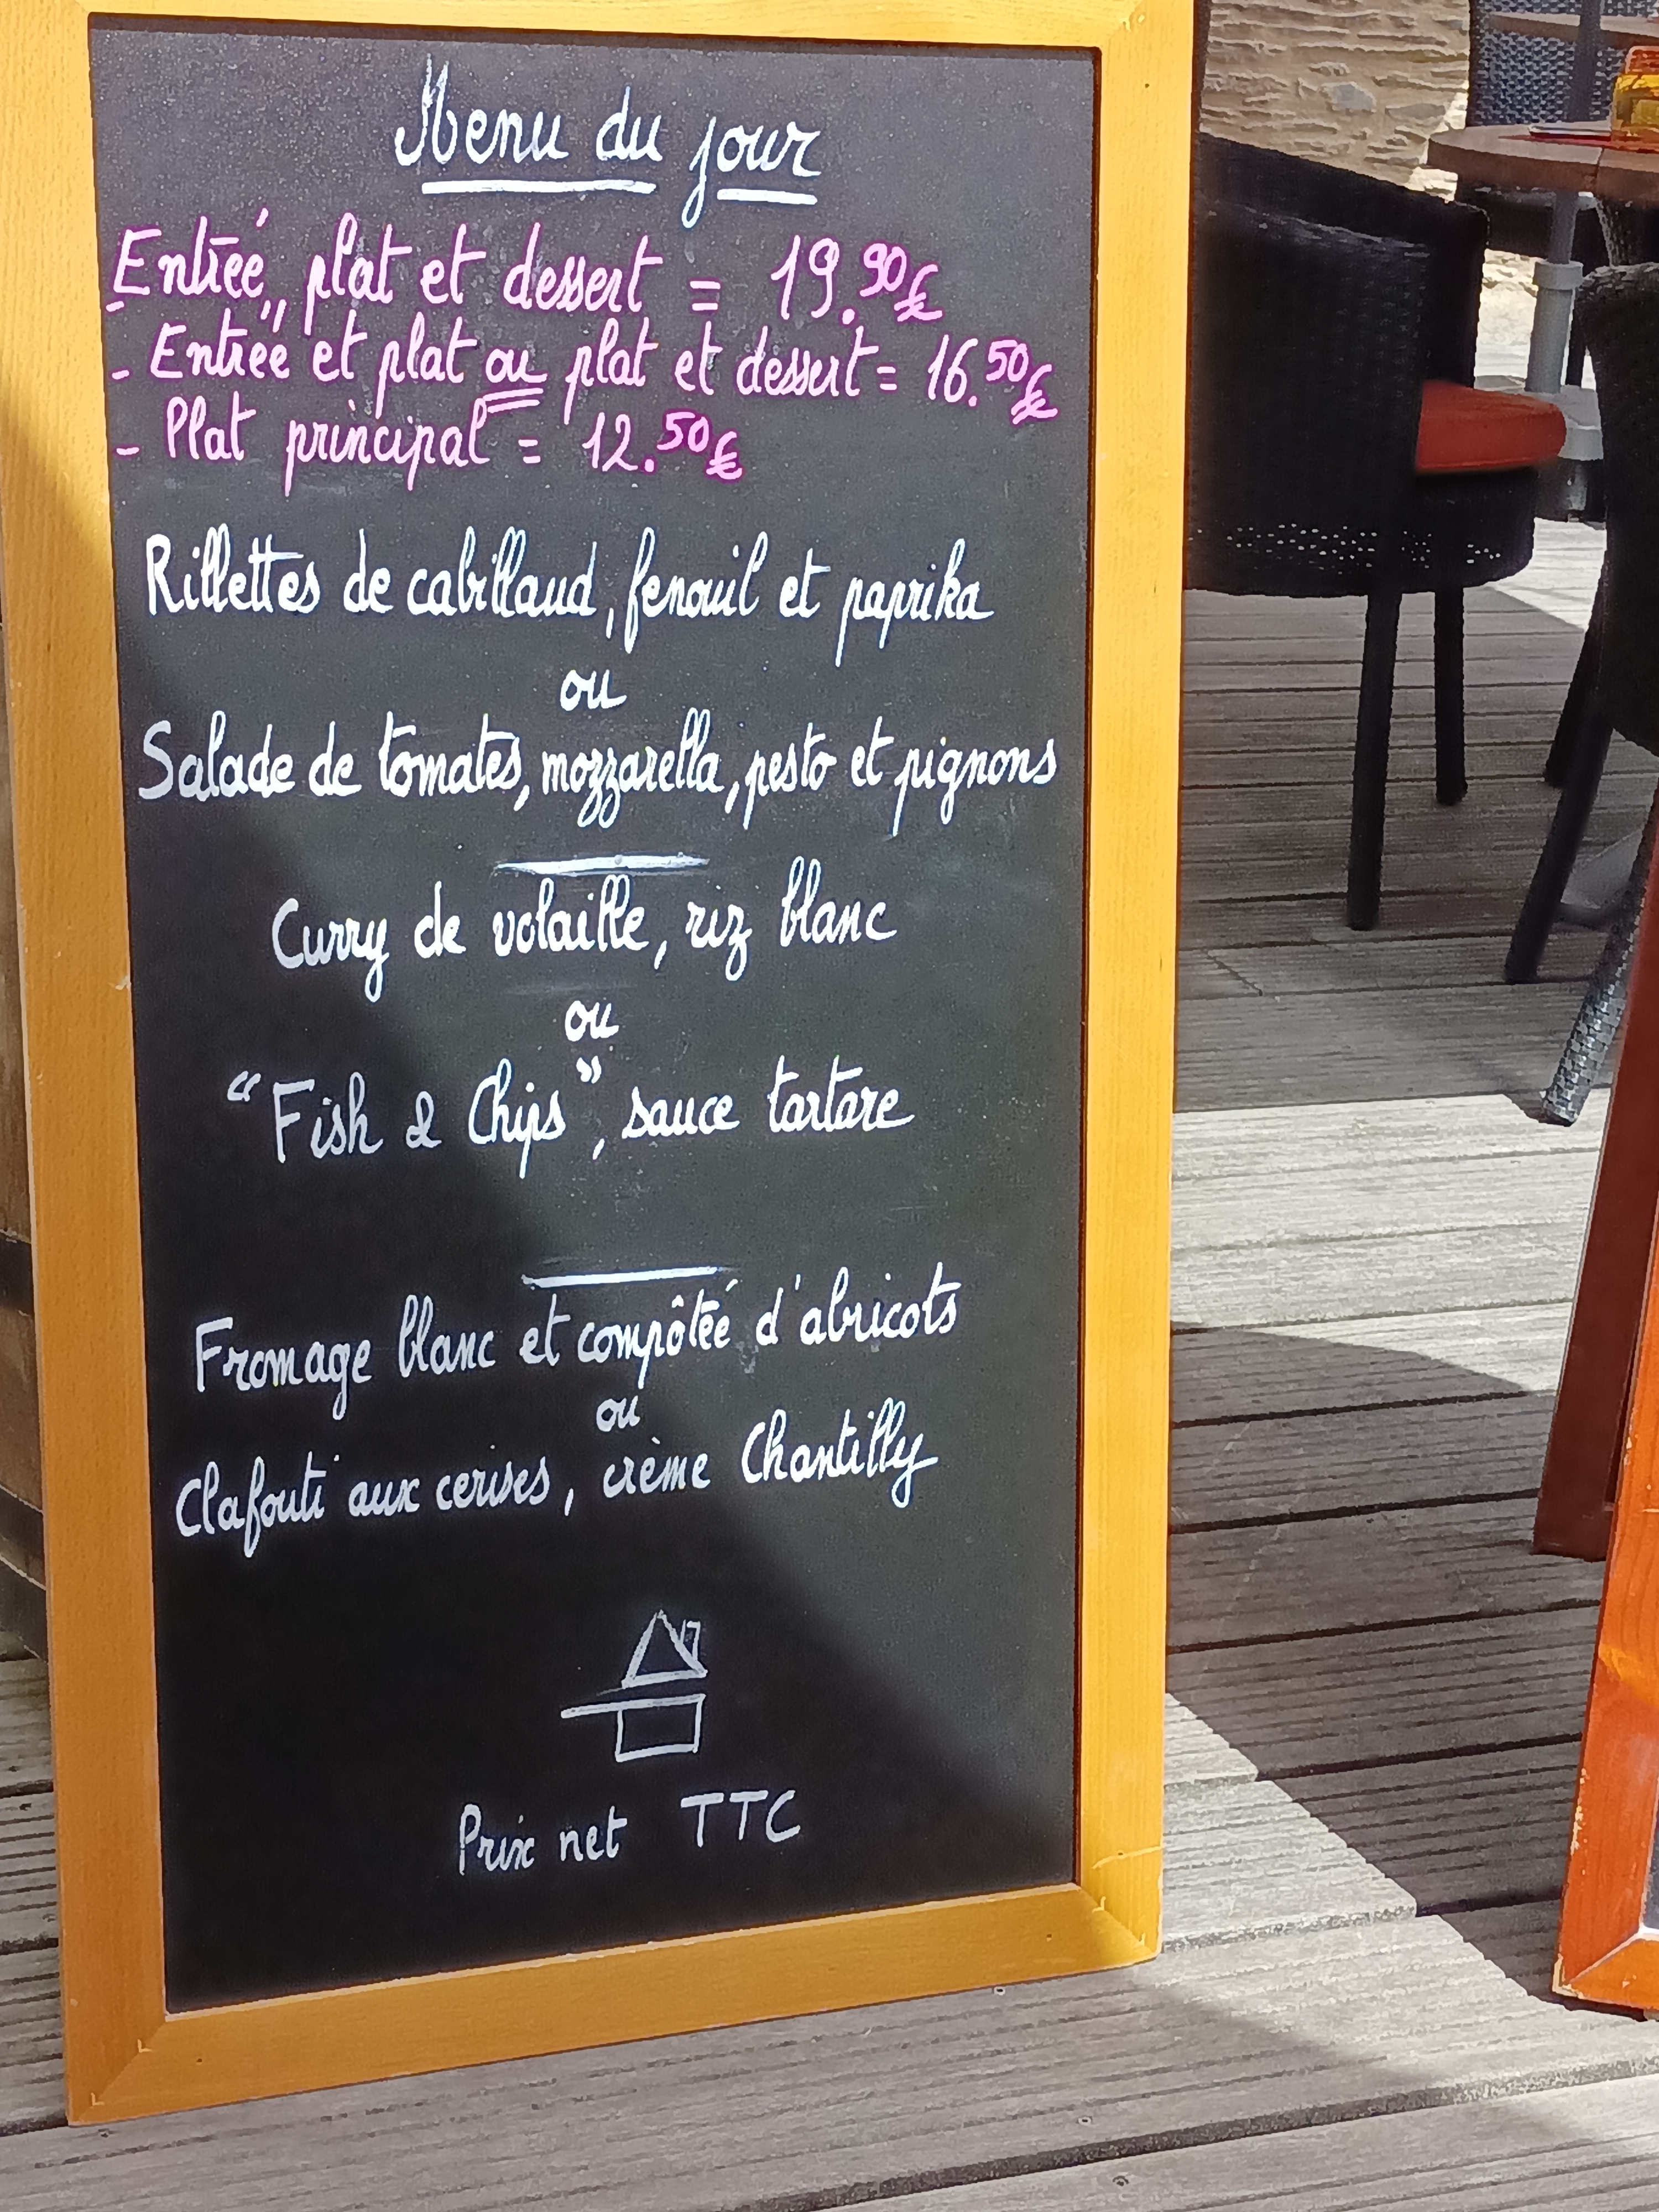 Menu du jour
- Entrée, plat et dessert = 19.90€
- Entrée et plat ou plat et dessert = 16.50€
- Plat principal = 12.50€
Rillettes de cabillaud, fenouil et paprika
ou
Salade de tomates, mozzarella, pesto et pignons
Curry de volaille, riz blanc
ou
"Fish & Chips", sauce tartare
Fromage blanc et compôtée d'abricots
ou
Clafouti aux cerises, crème Chantilly
Prix net TTC